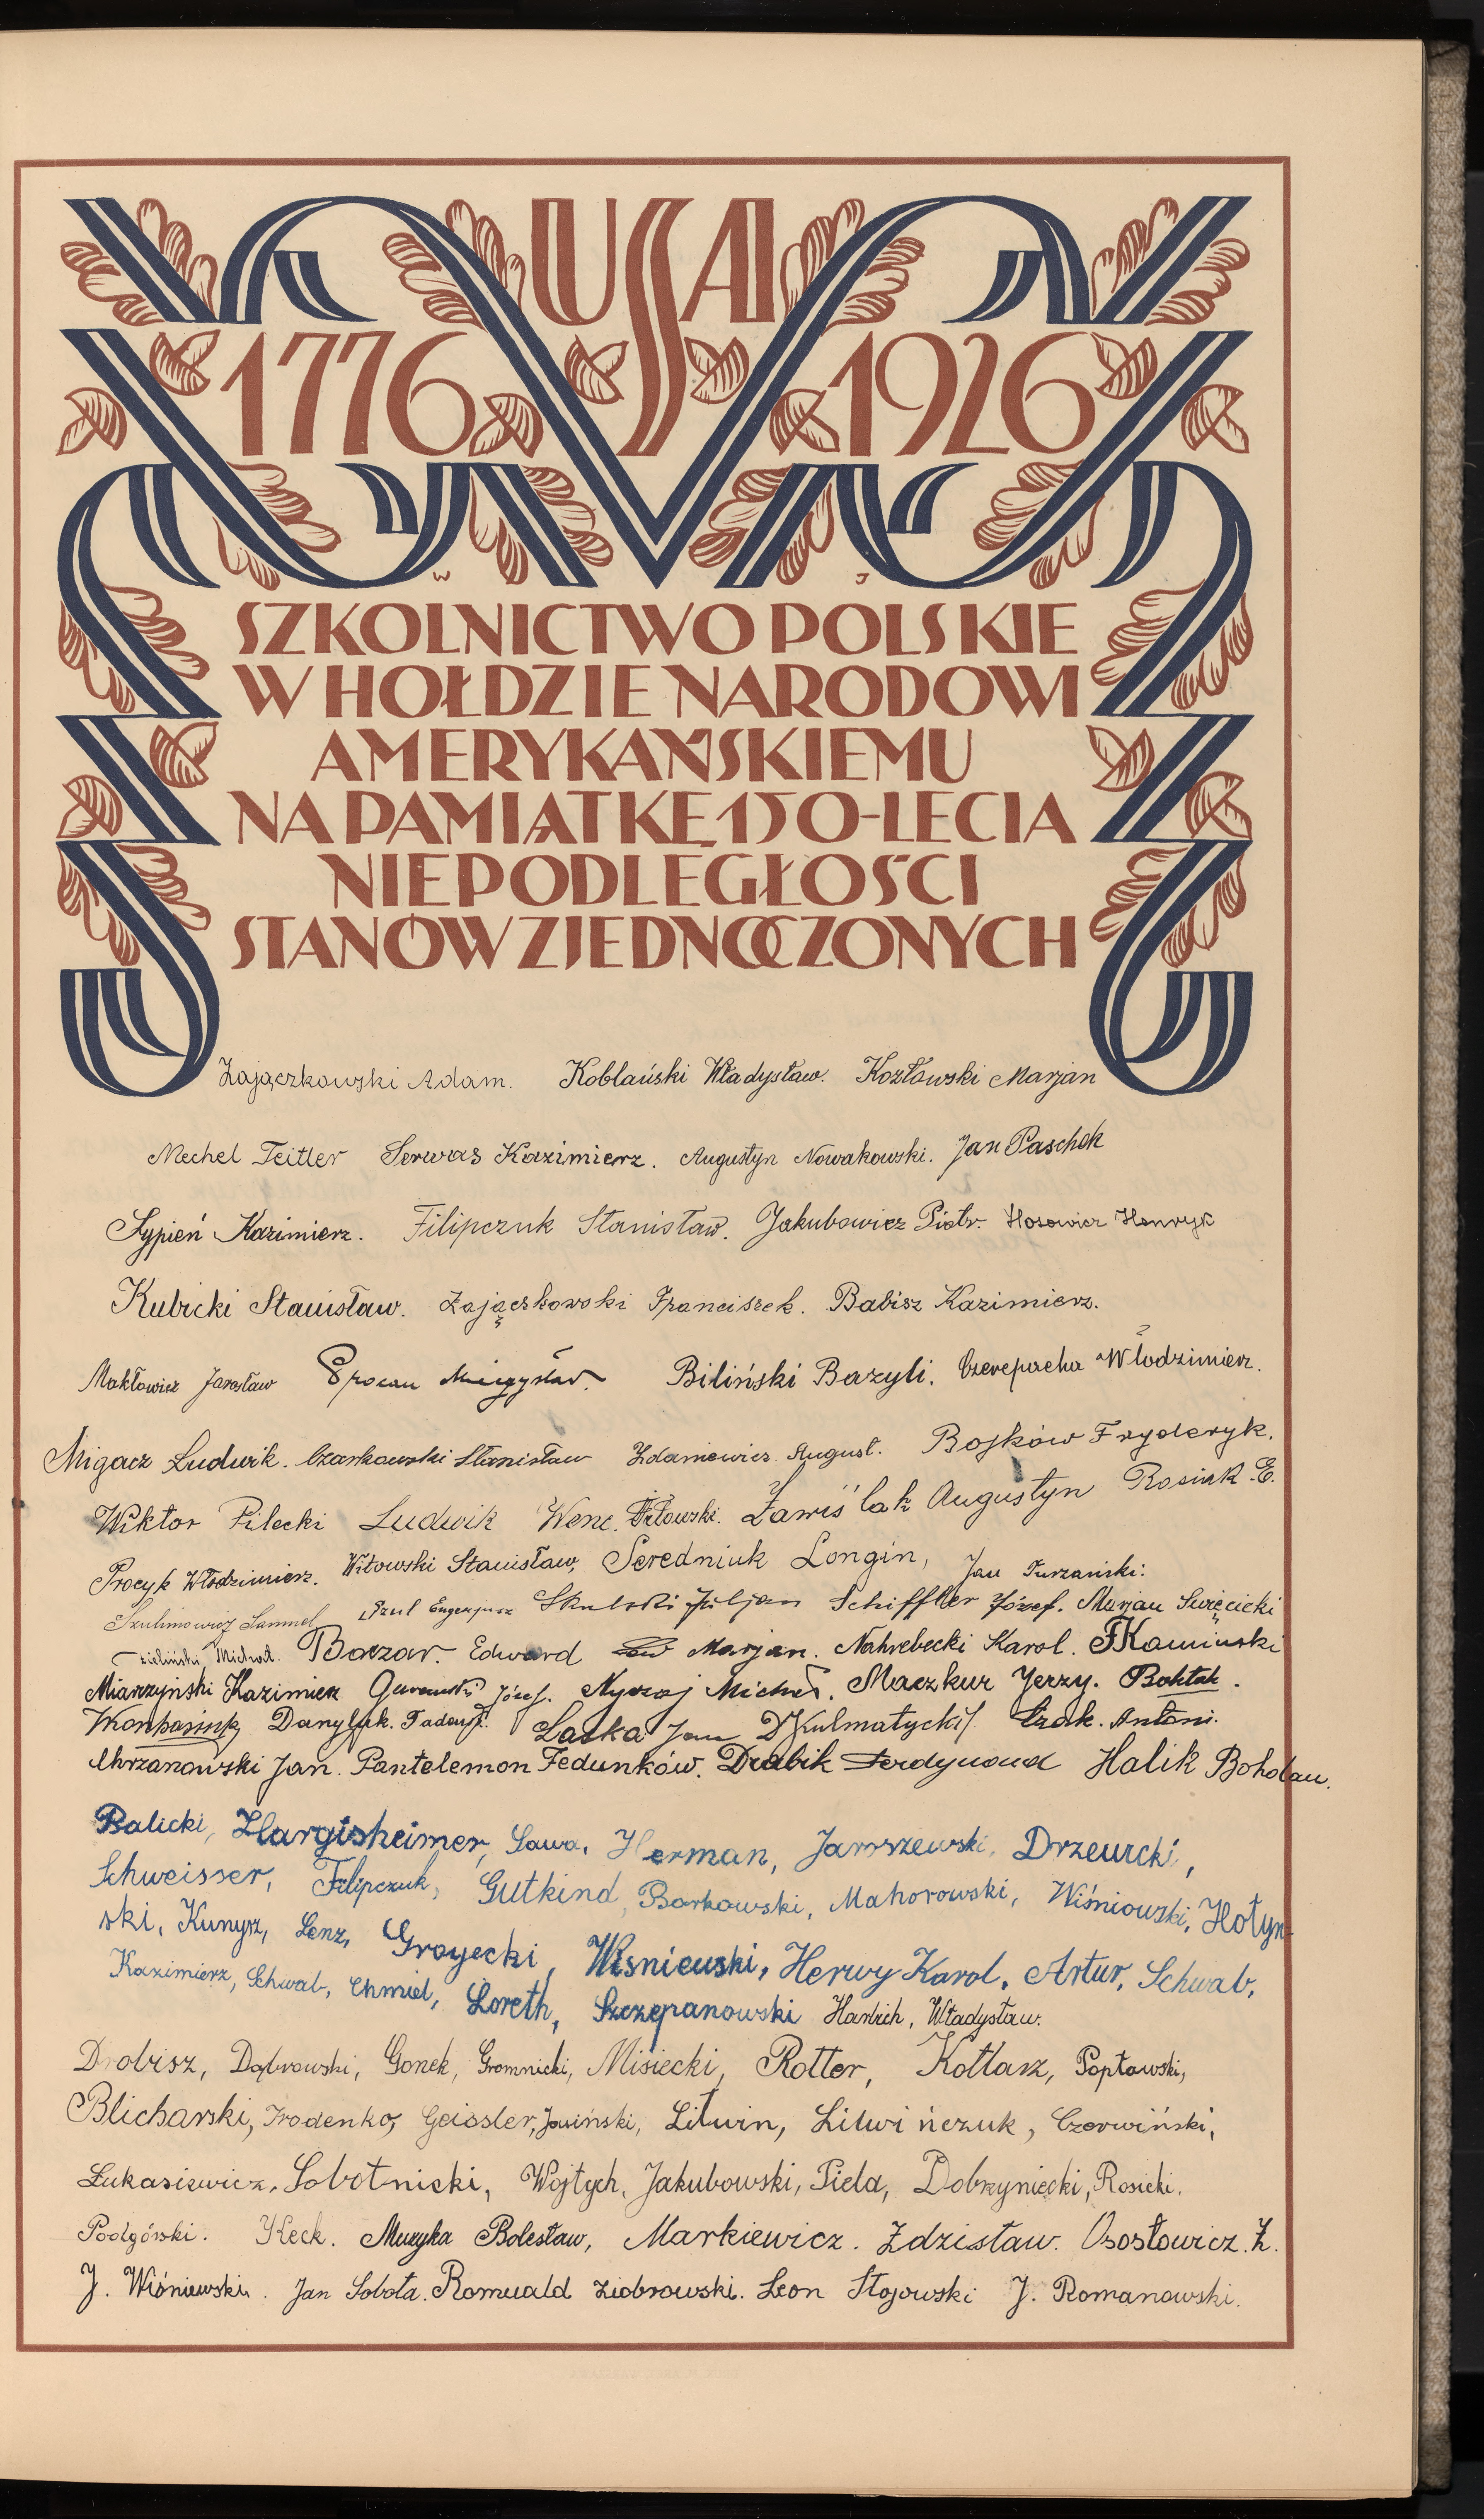 USA
1776 1926
W J
SZKOLNICTWO POLSKIE
W HOŁDZIE NARODOWI
AMERYKAŃSKIEMU
NA PAMIĄTKĘ 150-LECIA
NIEPODLEGŁOŚCI
STANÓW ZJEDNOCZONYCH
Zajączkowski Adam. Koblański Władysław. Kozłowski Marjan
Mechel Teitler Serwas Kazimierz. Augustyn Nowakowski. Jan Paschek
Sypień Kazimierz. Filipczuk Stanisław. Jakubowicz Piotr. Henryk
Kubicki Stanisław. Zajączkowski Franciszek. Babisz Kazimierz.
Makłowicz Jarosław Mieczysław. Biliński Bazyli. Czerepacha Włodzimierz.
Migacz Ludwik. Czarkowski Stanisław Zdaniewicz August. Bojków Fryderyk.
Wiktor Pilecki Ludwik Wenc. Orłowski. Zawiślak Augustyn Rosiak E.
Procyk Włodzimierz. Witowski Stanisław, Seredniuk Longin, Jan Turzański.
Szulimowicz Samuel Eugenjusz Skulski Juljan Schiffler Józef. Marjan Święcicki
Zieliński Michał. Baczar. Edward Marjan. Nahrebecki Karol. F Kamiński
Miarzyński Kazimierz Józef. Michał. Maczkur Jerzy. Boktak.
Danyluk. Tadeusz. Laska Jan D Kulmatycki J. Czak. Antoni.
Chrzanowski Jan. Pantelemon Fedunków. Drabik Ferdynand Halik Bohdan.
Balicki, Hargisheimer, Sawa, Herman, Jaroszewski, Drzewicki,
Schweisser, Filipczuk, Gutkind, Borkowski, Mahorowski, Wiśniowski, Hołyn-
ski, Kunysz, Lenz, Grojecki, Wiśniewski, Herwy Karol, Artur, Schwab,
Kazimierz, Schwab, Chmiel, Loreth, Szczepanowski Harlich, Władysław.
Drobisz, Dąbrowski, Gonek, Gromnicki, Misiecki, Rotter, Kotlarz, Popławski,
Blicharski, Geissler, Jasiński, Litwin, Litwińczuk, Czerwiński,
Łukasiewicz, Sobotnicki, Wojtych, Jakubowski, Piela, Dobrzyniecki, Rosicki.
Podgórski. Keck. Muzyka Bolesław, Markiewicz. Zdzisław. Ososłowicz. Z.
J. Wiśniewski. Jan Sobota. Romuald Ziobrowski. Leon Stojowski J. Romanowski.